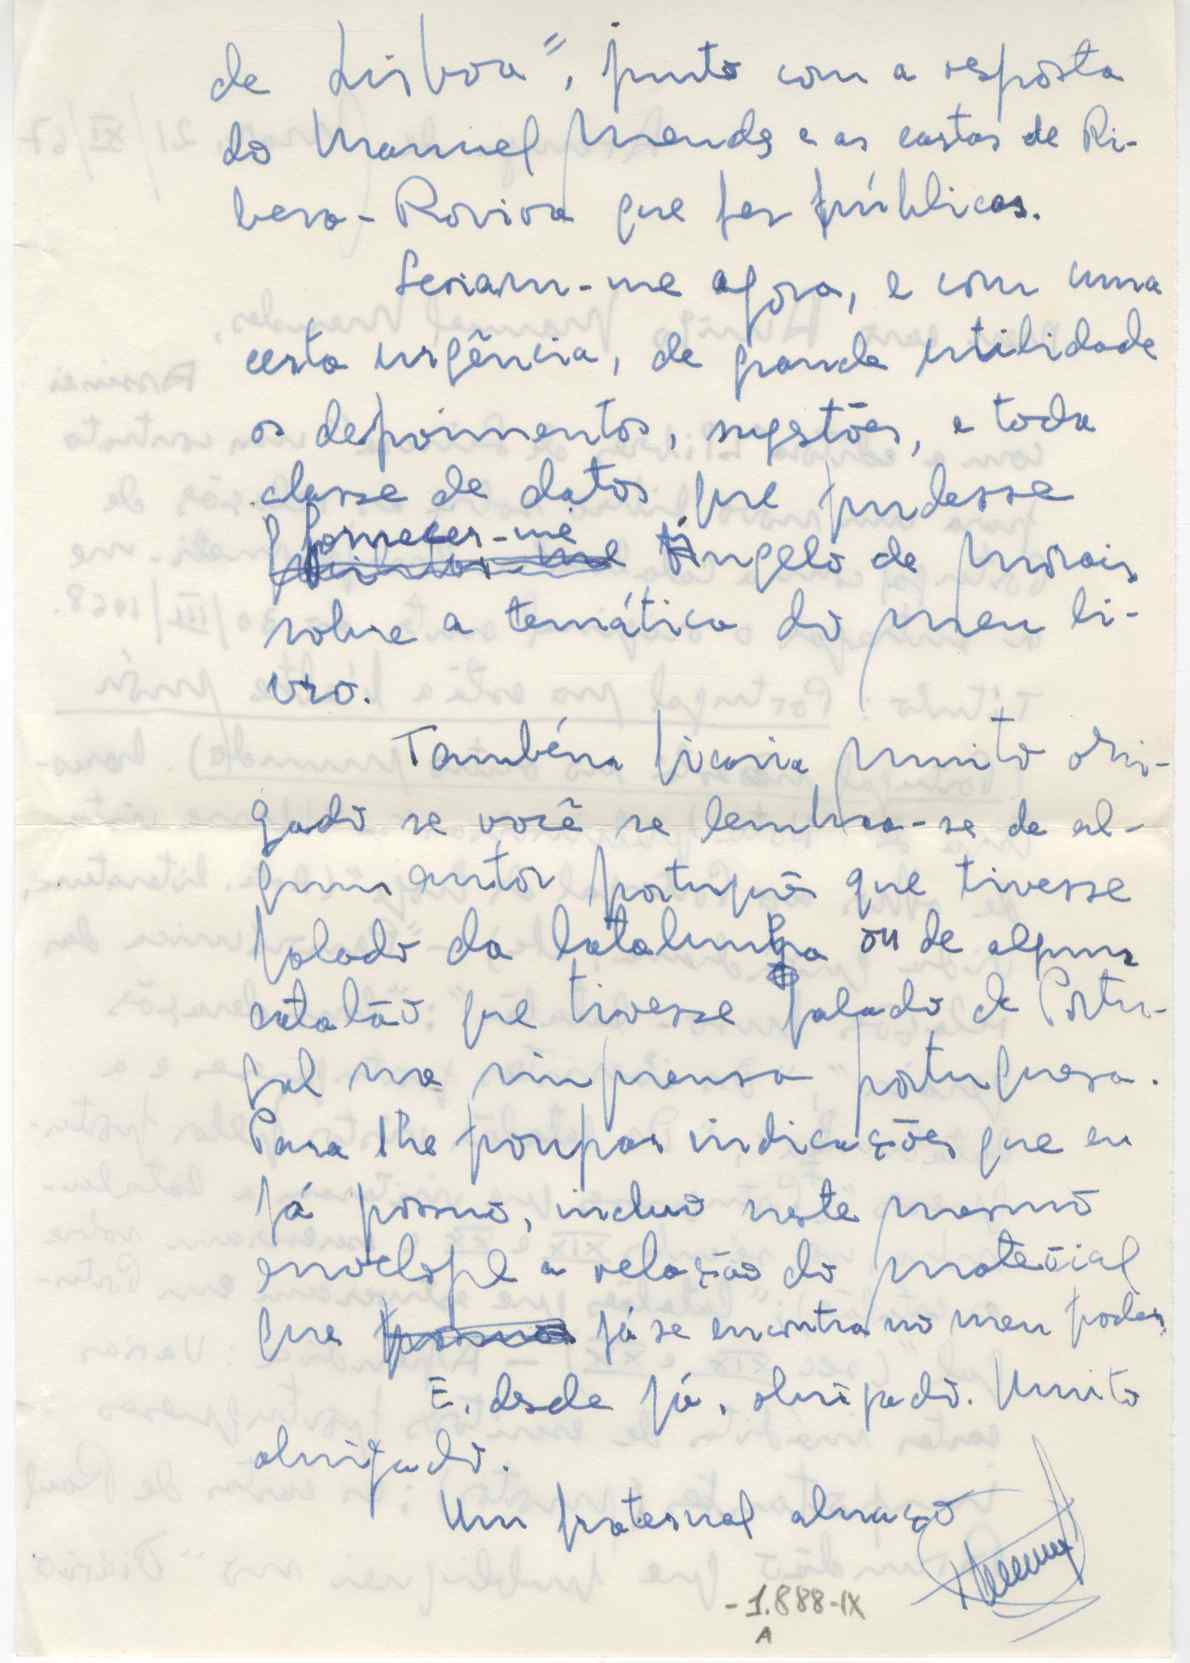 de Lisboa", junto com a resposta
do Manuel Mendes e as cartas de Ri-
bera-Rovira que fez públicas.
Seriam-me agora, e com uma
certa urgência, de grande utilidade
os depoimentos, sugestões, e toda
classe de datos que pudesse
fornecer-me Ângelo de Morais
sobre a temática do meu li-
vro.
Também ficaria muito obri-
gado se você se lembra-se de al-
gum autor português que tivesse
falado da Catalunha ou de algum
catalão que tivesse falado de Portu-
gal na imprensa portuguesa.
Para lhe poupar indicações que eu
já possuo, incluo neste mesmo
envelope a relação do material
que já se encontra no meu poder.
E, desde já, obrigado. Muito
obrigado.
Um fraternal abraço
- 1.888-IX
A